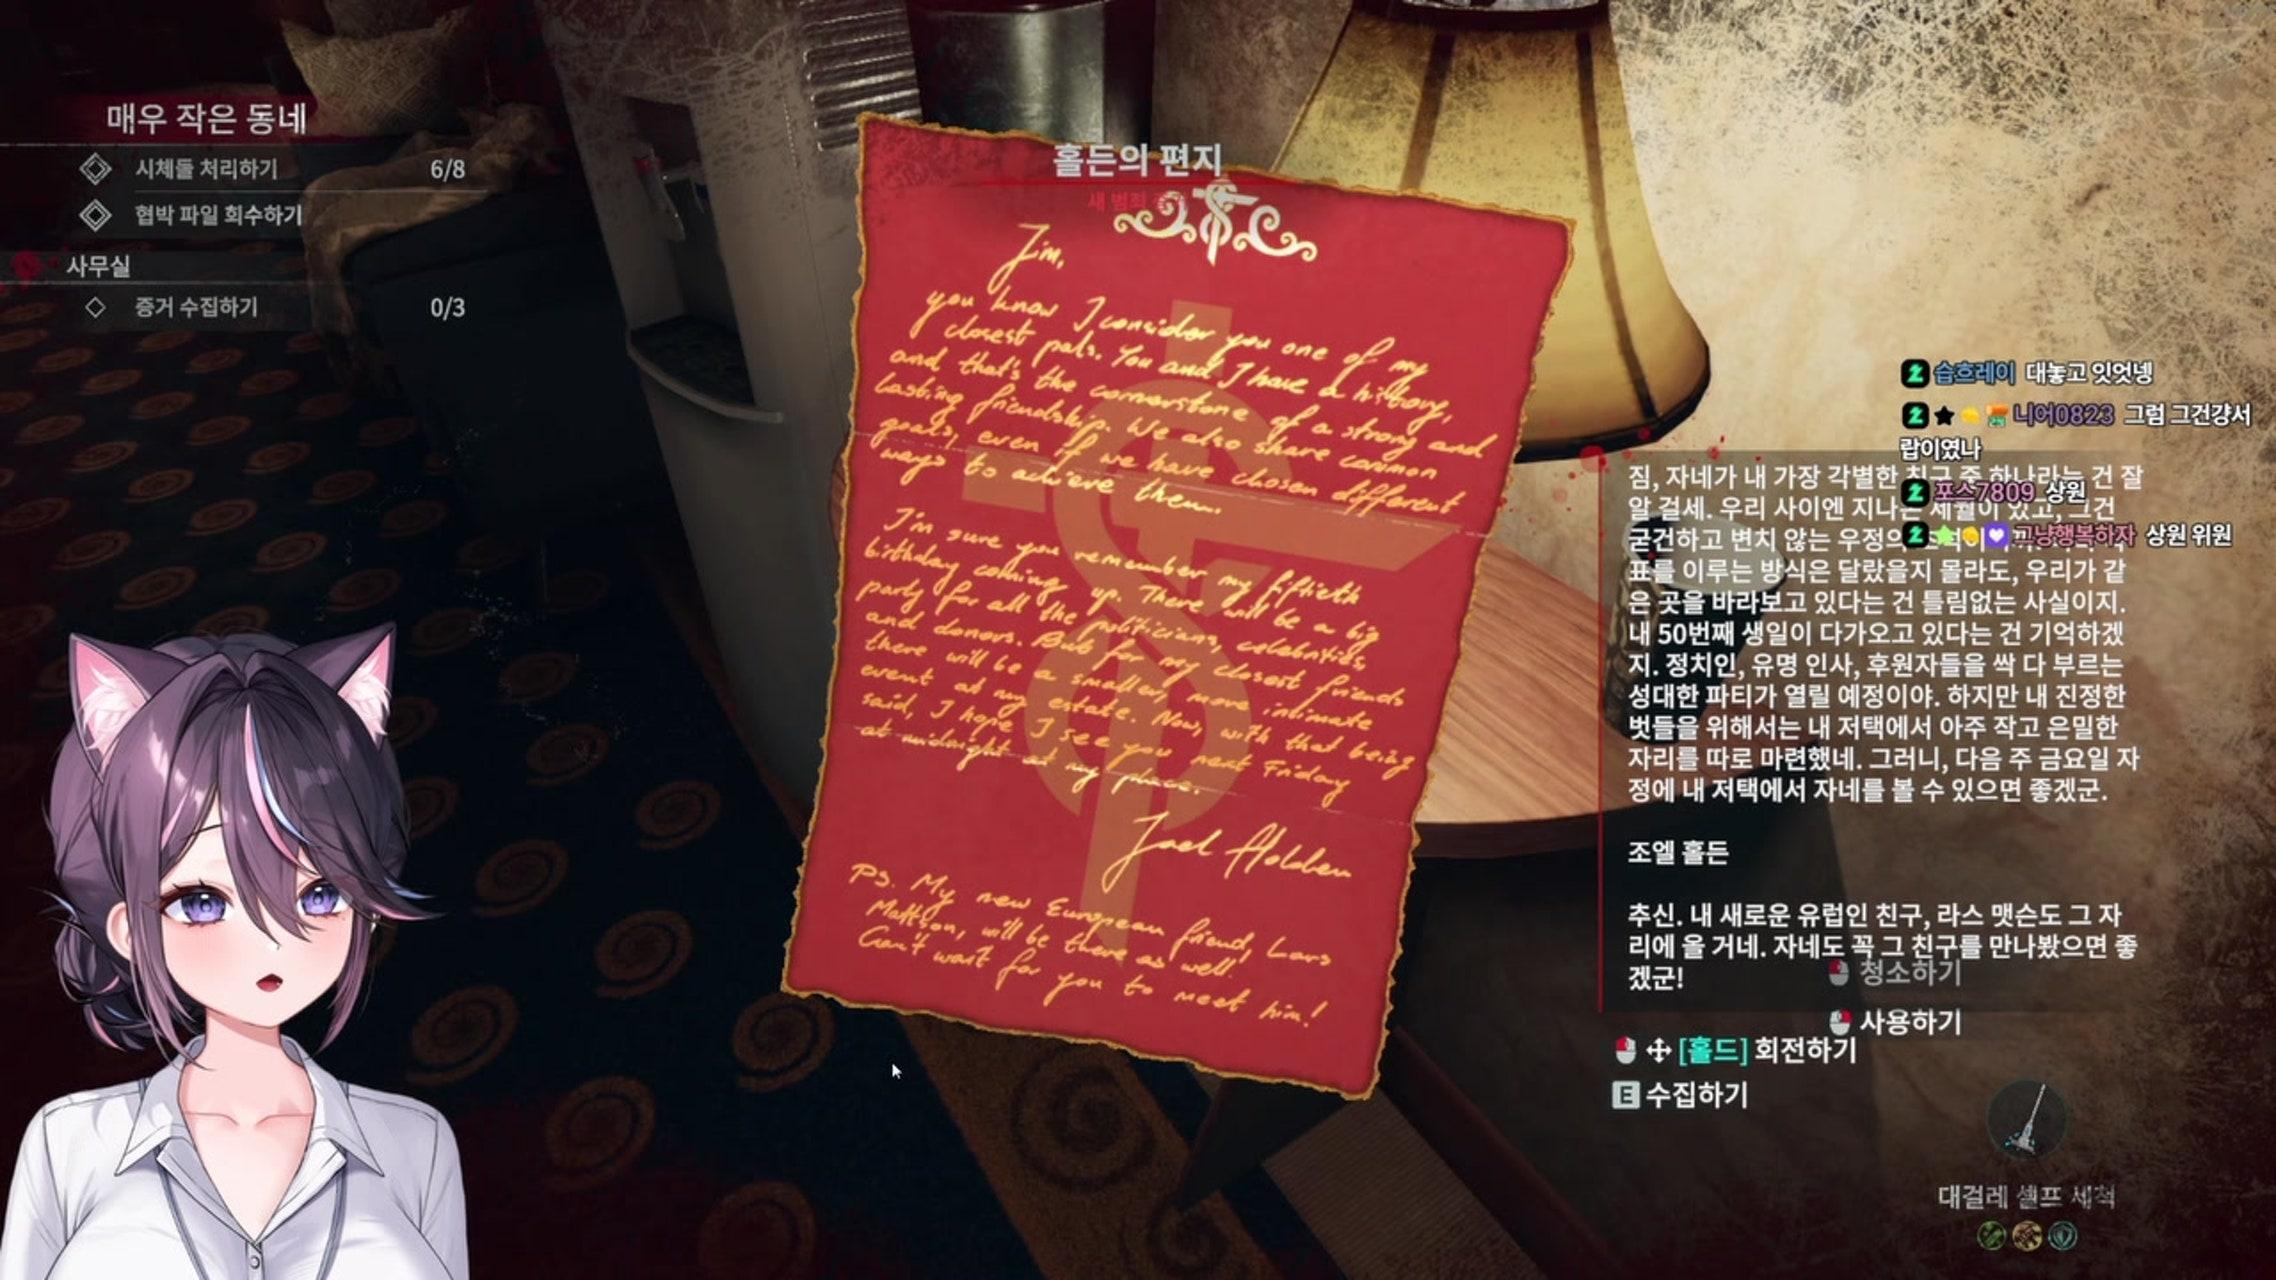 매우 작은 동네
시체들 처리하기 6/8
협박 파일 회수하기
사무실
증거 수집하기 0/3
홀든의 편지
새 범죄
Jim,
you know I consider you one of my
closest pals. You and I have a history,
and that's the cornerstone of a strong and
lasting friendship. We also share common
goals, even if we have chosen different
ways to achieve them.
I'm sure you remember my fiftieth
birthday coming up. There will be a big
party for all the politicians, celebrities
and donors. But for my closest friends
there will be a smaller, more intimate
event at my estate. Now, with that being
said, I hope I see you next Friday
at midnight at my place.
Joel Holden
Ps. My new European friend, Lars
Mattson, will be there as well.
Can't wait for you to meet him!
습흐레이 대놓고 잇엇넹
니어0823 그럼 그건걍서
랍이였나
포스7809 상원
그냥행복하자 상원 위원
짐, 자네가 내 가장 각별한 친구 중 하나라는 건 잘
알 걸세. 우리 사이엔 지나온 세월이 있고, 그건
굳건하고 변치 않는 우정의
표를 이루는 방식은 달랐을지 몰라도, 우리가 같
은 곳을 바라보고 있다는 건 틀림없는 사실이지.
내 50번째 생일이 다가오고 있다는 건 기억하겠
지. 정치인, 유명 인사, 후원자들을 싹 다 부르는
성대한 파티가 열릴 예정이야. 하지만 내 진정한
벗들을 위해서는 내 저택에서 아주 작고 은밀한
자리를 따로 마련했네. 그러니, 다음 주 금요일 자
정에 내 저택에서 자네를 볼 수 있으면 좋겠군.
조엘 홀든
추신. 내 새로운 유럽인 친구, 라스 맷슨도 그 자
리에 올 거네. 자네도 꼭 그 친구를 만나봤으면 좋
겠군!
청소하기
사용하기
[홀드] 회전하기
E 수집하기
대걸레 셀프 세척